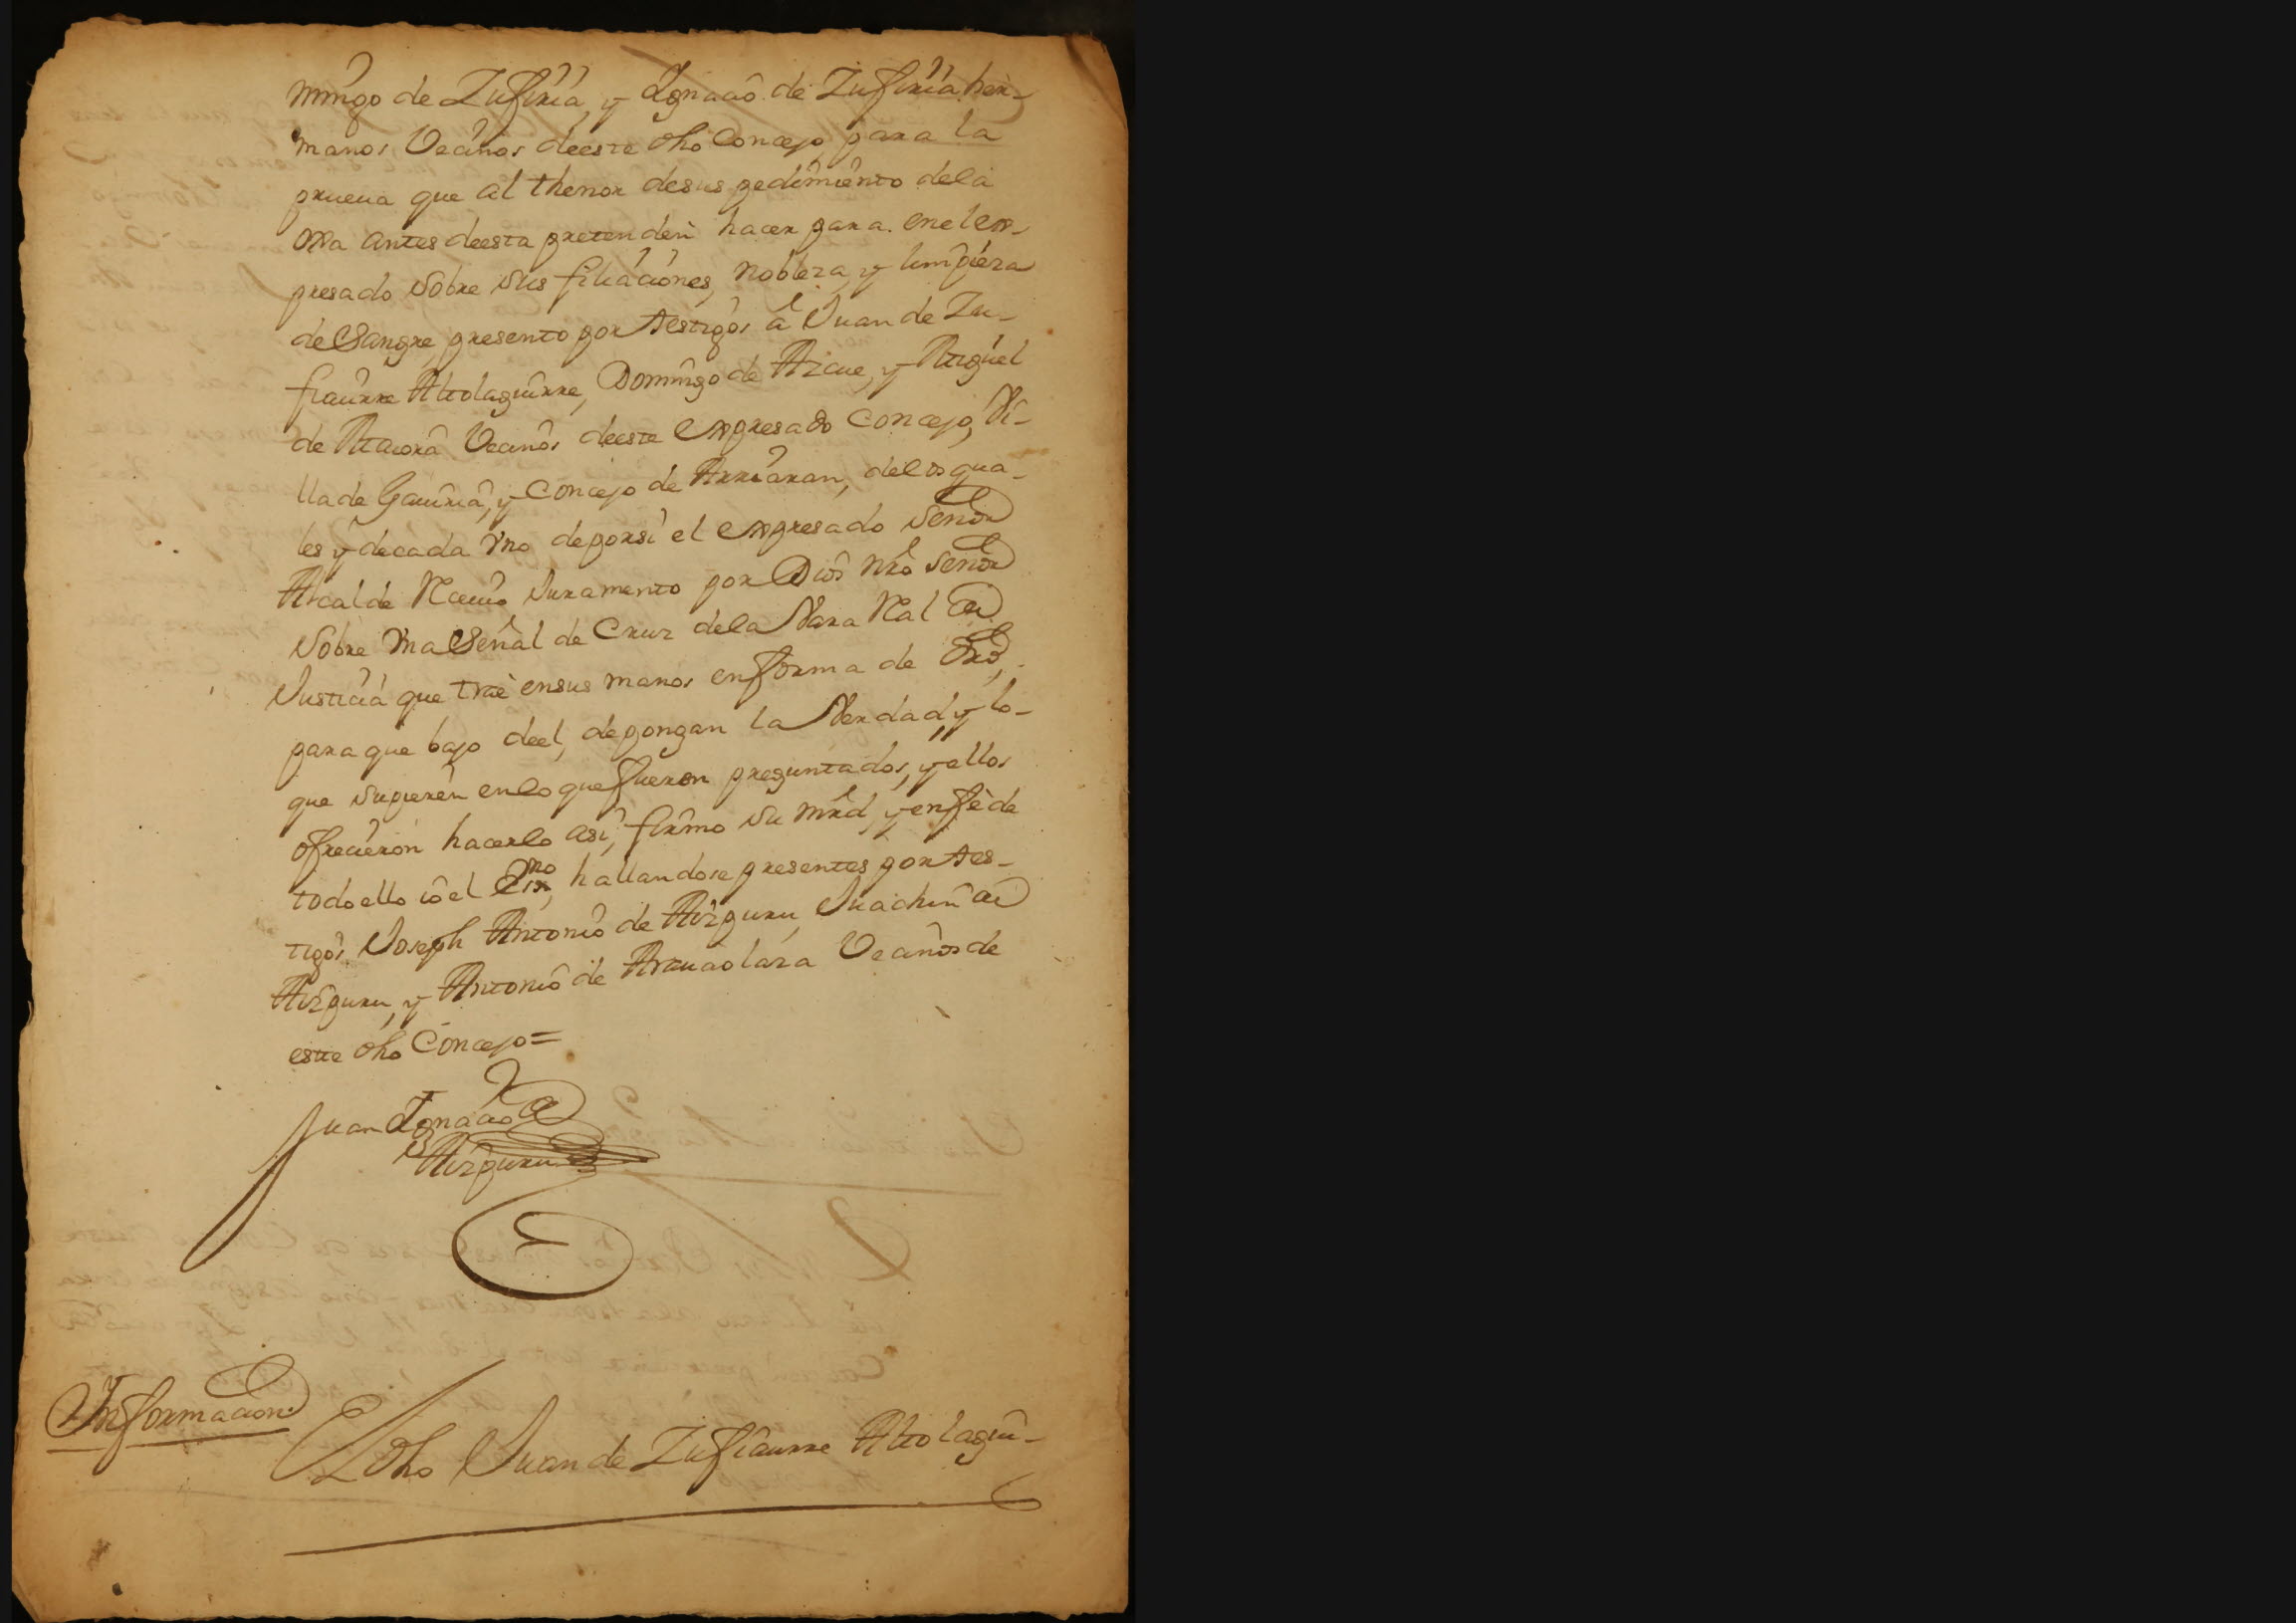 mingo de Zufiria, y Ignacio de Zufiria her-
manos Vecinos deeste dho Concejo, para la
prueua que al thenor desus pedimiento dela
ora antes deesta pretenden hacer para. enel ex-
presado sobre sus filiaciones, nobleza, y limpieza
de Sangre, presento por testigos â Juan de Zu-
fiaurre Altolaguirre, Domingo de Azcue, y Miguel
de Vecinos deeste expresado Concejo, Vi-
lla de Gauiria, y Concejo de Arriaran, delos qua-
les y decada Vno deporsi el expresado Señor
Alcalde Reciuio Juramento por Dios nrô Señor
Sobre Vna Señal de Cruz dela Vara Ral de
Justicia que trae ensus manos enforma de drô,
para que bajo deel, depongan la Verdad, y lo-
que supieren enlo quefueren preguntados, y ellos
ofrecieron hacerlo asi, firmo su mrd, y enfè de
todo ello io el Essno, hallandose presentes por tes-
tigos Joseph Antonio de Aizpuru, Juachin de
Aizpuru, y Antonio de Vecinos de
este dho Concejo=
Juan Ignacio de
Aizpuru
Informacion
El dho Juan de Zufiaurre Altolagui-